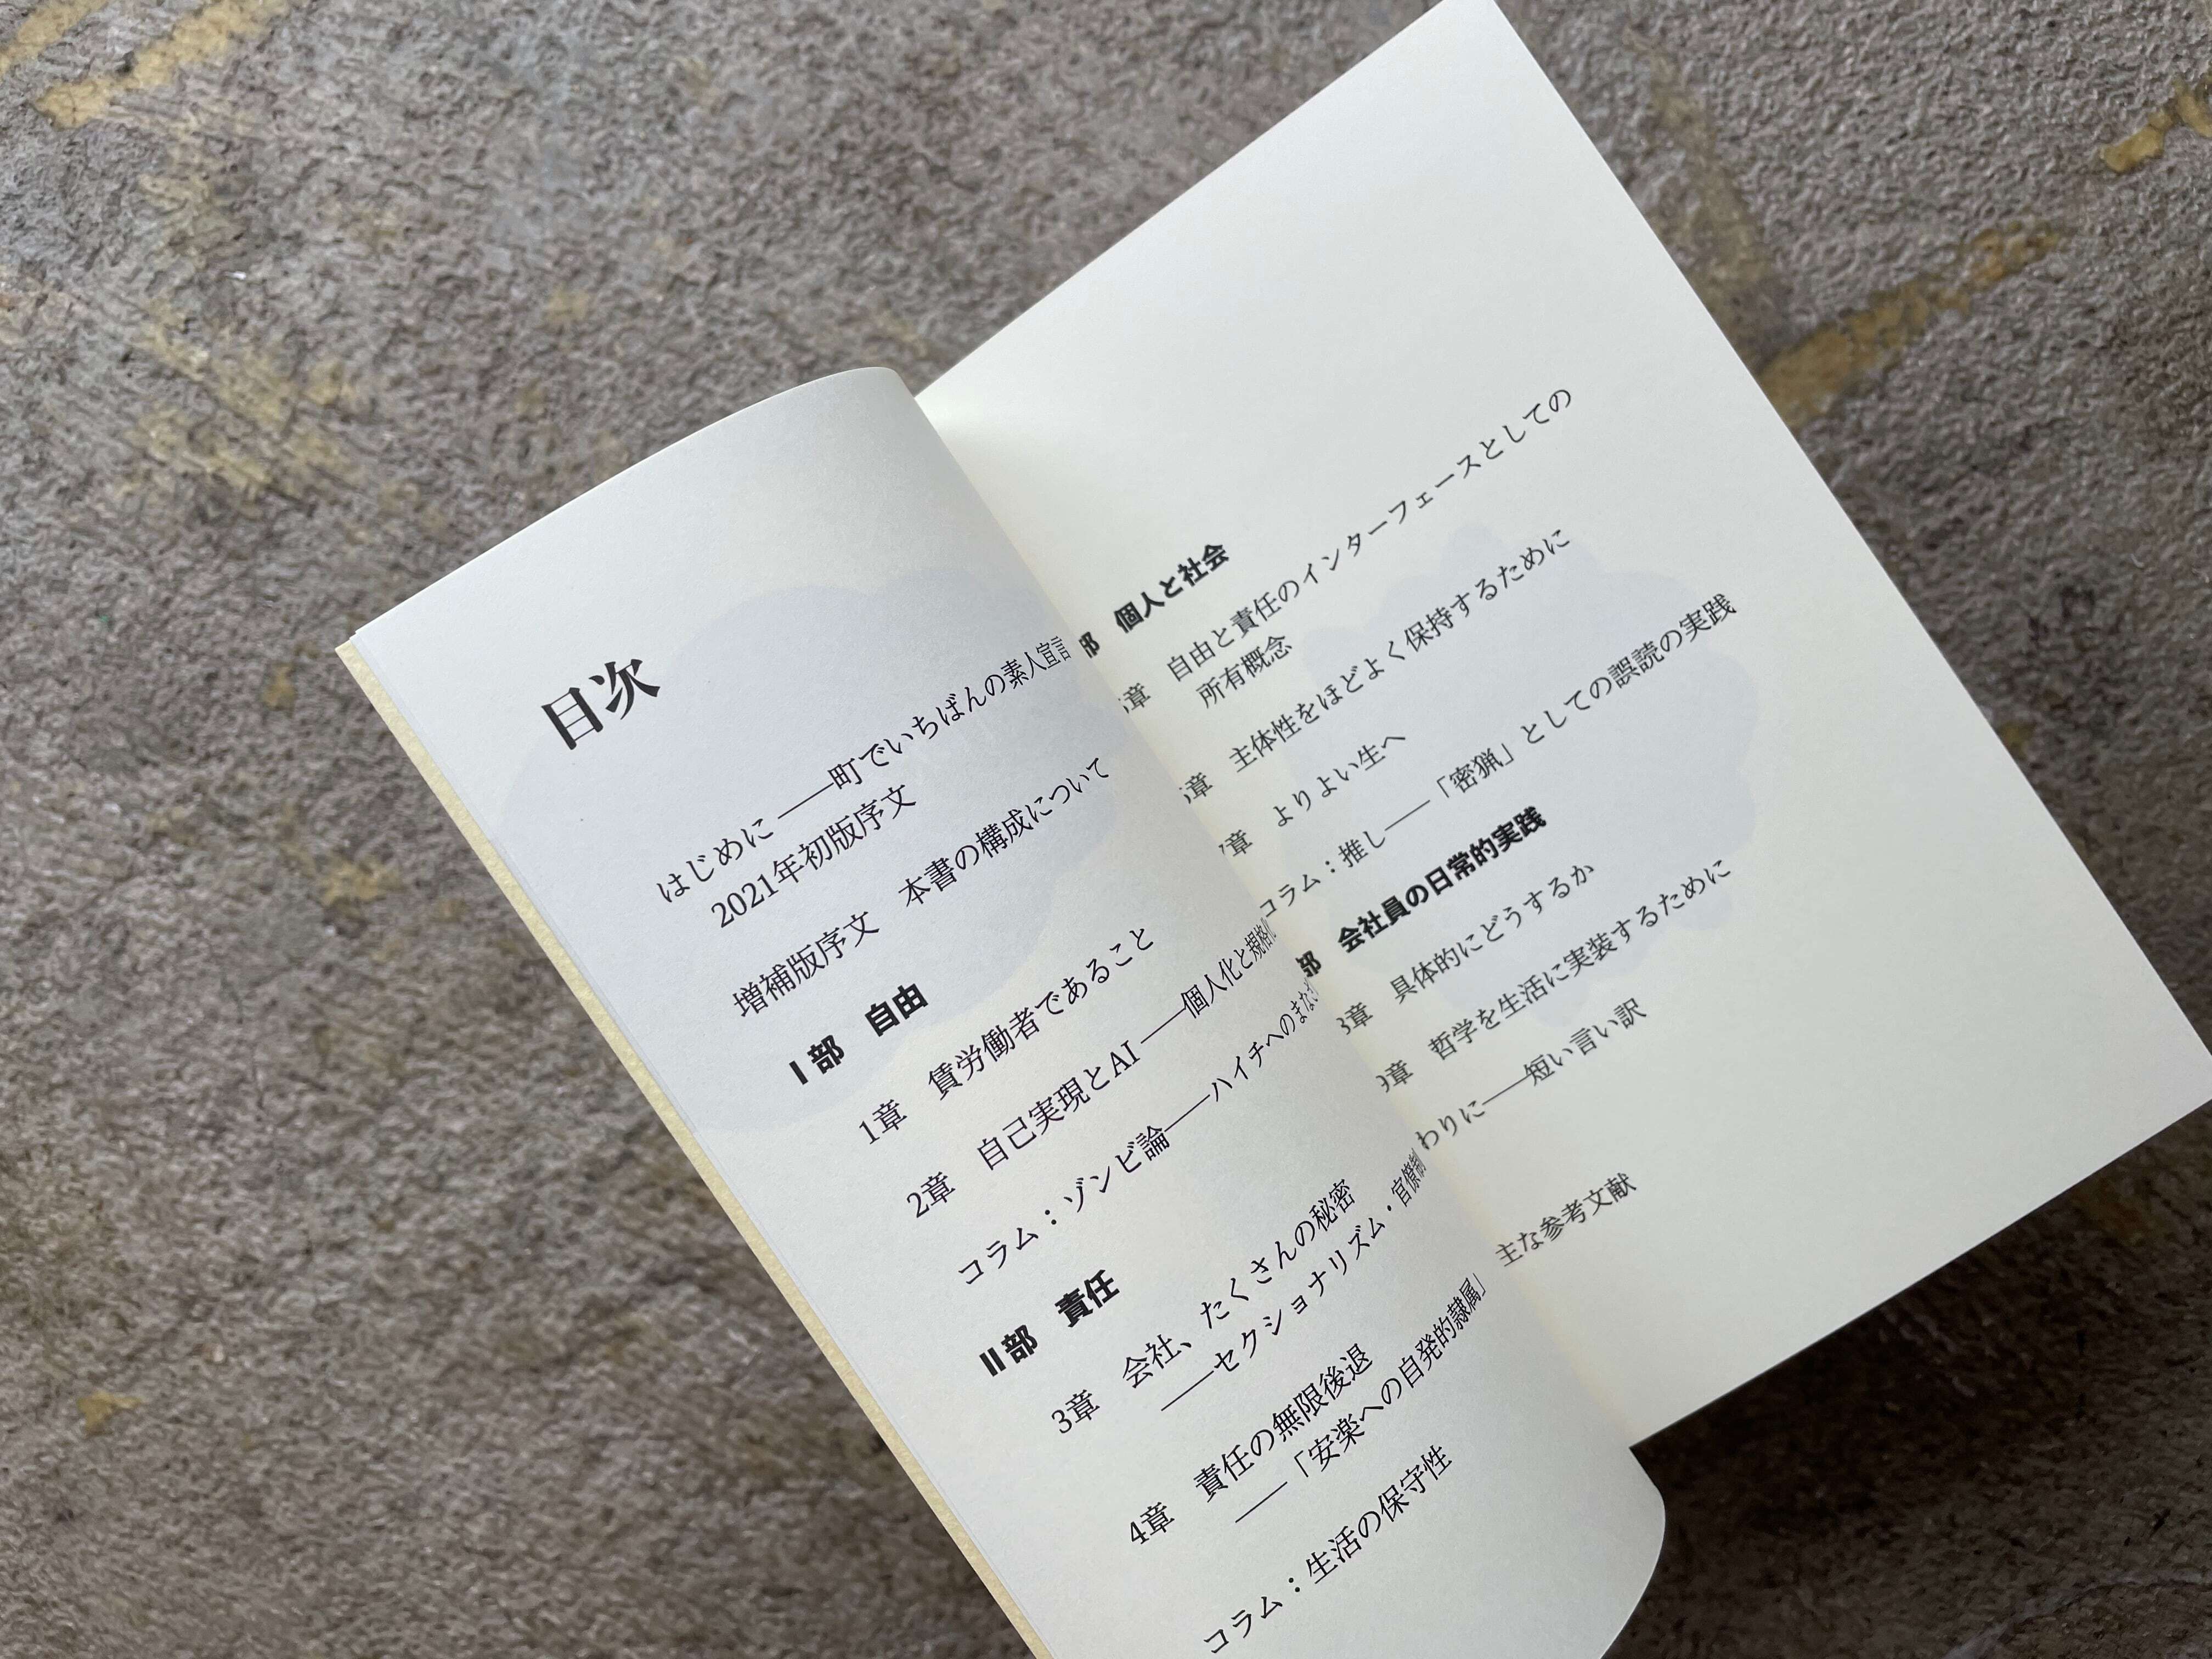 目次
はじめに――町でいちばんの素人宣言
2021年初版序文
増補版序文　本書の構成について
Ⅰ部　自由
1章　賃労働者であること
2章　自己実現とAI――個人化と規格
コラム：ゾンビ論――ハイチへのまな
Ⅱ部　責任
3章　会社、たくさんの秘密
――セクショナリズム・官僚制
4章　責任の無限後退
――「安楽への自発的隷属」
コラム：生活の保守性
部　個人と社会
章　自由と責任のインターフェースとしての
所有概念
章　主体性をほどよく保持するために
章　よりよい生へ
コラム：推し――「密猟」としての誤読の実践
部　会社員の日常的実践
章　具体的にどうするか
9章　哲学を生活に実装するために
わりに――短い言い訳
主な参考文献